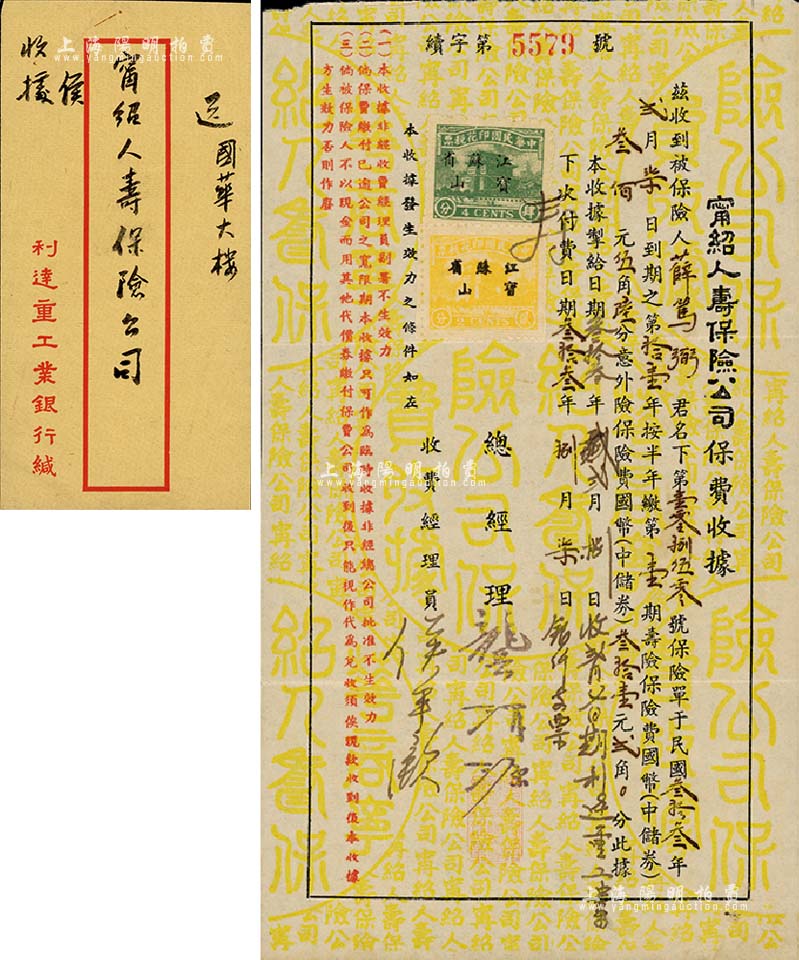 送國華大樓
甯紹人壽保險公司
候
收據
利達重工業銀行緘
續字第 5579 號
甯紹人壽保險公司保費收據
茲收到被保險人薛篤弼君名下第壹零捌伍零號保險單于民國叁拾叁年
貳月柒日到期之第拾壹年按半年繳第壹期壽險保險費國幣(中儲券)
叁佰元伍角陸分意外險保險費國幣(中儲券)叁拾壹元貳角0分此據
本收據掣給日期叁拾叁年貳月拾日
下次付費日期叁拾叁年捌月柒日
總經理
收費經理員
本收據發生效力之條件如左
(一)本收據非經收費經理員副署不生效力
(二)倘保費繳付已逾公司之寬限期本收據只可作為臨時收據非經總公司批准不生效力
(三)倘被保險人不以現金而用其他代價券繳付保費公司收到後只能視作代為兌收須俟現款收到後本收據
方生效力否則作廢
中華民國印花稅票
江蘇
寶山
4 CENTS
江蘇
寶山
2 CENTS
上海陽明拍賣
www.yangmingauction.com
上海陽明拍賣
www.yangmingauction.com
上海陽明拍賣
www.yangmingauction.com